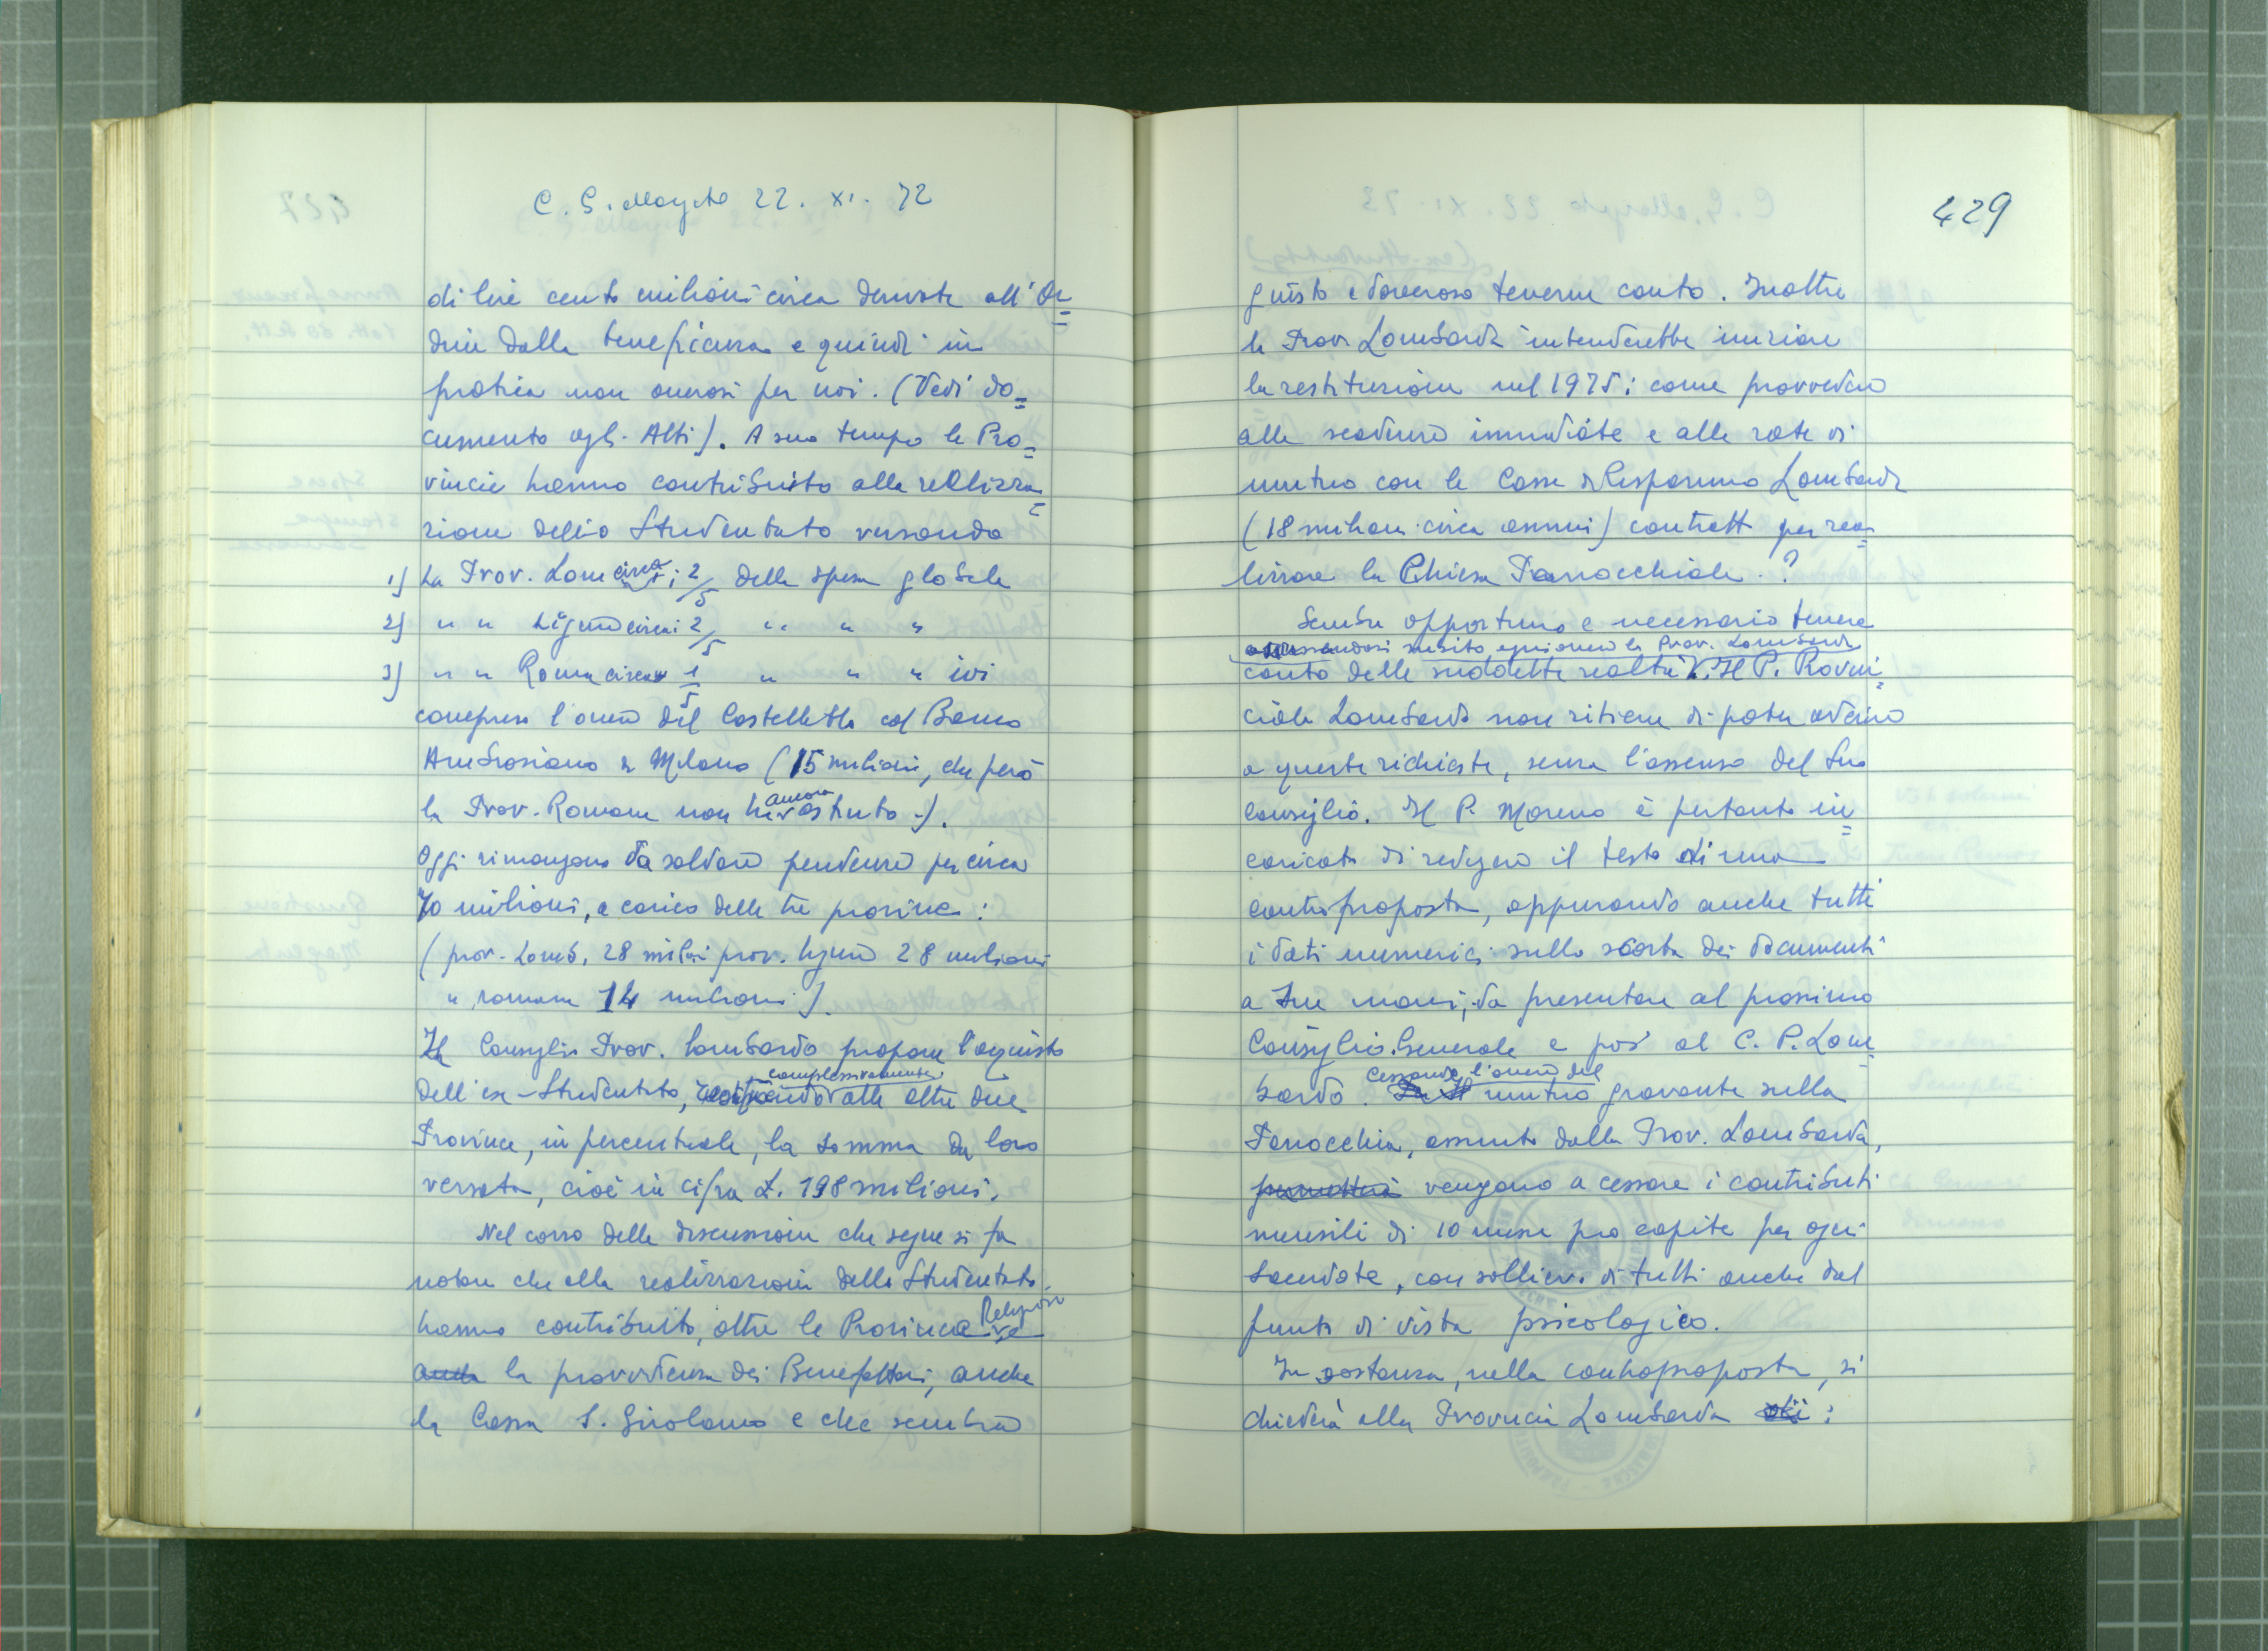 C. G. Magenta 22. XI. 72
di lire cento milioni circa derivate all'Or=
dine dalla beneficenza e quindi in
pratica non onerosi per noi. (Vedi do=
cumento agli Atti). A suo tempo le Pro=
vincie hanno contribuito alla realizza=
zione dello Studentato versando
1) La Prov. Lom circa: 2/5 della spesa globale
2) " " Ligure circa: 2/5 " " "
3) " " Romana circa 1/5 " " " ivi
compreso l'onere del Castelletto col Banco
Ambrosiano di Milano (15 milioni, che però
la Prov. Romana non ha ancora estinto).
Oggi rimangono da saldare pendenze per circa
70 milioni, a carico delle tre province:
(prov. Lomb. 28 milioni prov. ligure 28 milioni
" romana 14 milioni).
Il Consiglio Prov. lombardo propone l'acquisto
dell'ex-Studentato, restituendo complessivamente alle altre due
Province, in percentuale, la somma da loro
versata, cioè in cifra £. 198 milioni.
Nel corso della discussione che segue si fa
notare che alla realizzazione dello Studentato
hanno contribuito, oltre le Province Religiose
anche la provvidenza dei Benefattori, anche
la Cassa S. Girolamo e che sembra
429
giusto e doveroso tenerne conto. Inoltre
la Prov. Lombarda intenderebbe iniziare
la restituzione nel 1975: come provvedere
alle scadenze immediate e alle rate di
mutuo con la Cassa di Risparmio Lombarda
(18 milioni circa annui) contratto per rea=
lizzare la Chiesa Parrocchiale?
Sembra opportuno e necessario tenere
subito ogni onere la Prov. Lombarda
conto delle suddette realtà. Il P. Provin=
ciale Lombardo non ritiene di poter aderire
a queste richieste, senza l'assenso del Suo
Consiglio. Il P. Moreno è pertanto in=
caricato di redigere il testo di una
controproposta, appurando anche tutti
i dati numerici sulla scorta dei documenti
a sue mani, da presentare al prossimo
Consiglio Generale e poi al C. P. Lom=
bardo. Cessando l'onere del mutuo gravante sulla
Parrocchia, assunto dalla Prov. Lombarda,
permetterà vengono a cessare i contributi
mensili di 10 messe pro capite per ogni
Sacerdote, con sollievo di tutti anche dal
punto di vista psicologico.
In sostanza, nella controproposta, si
chiederà alla Provincia Lombarda di: